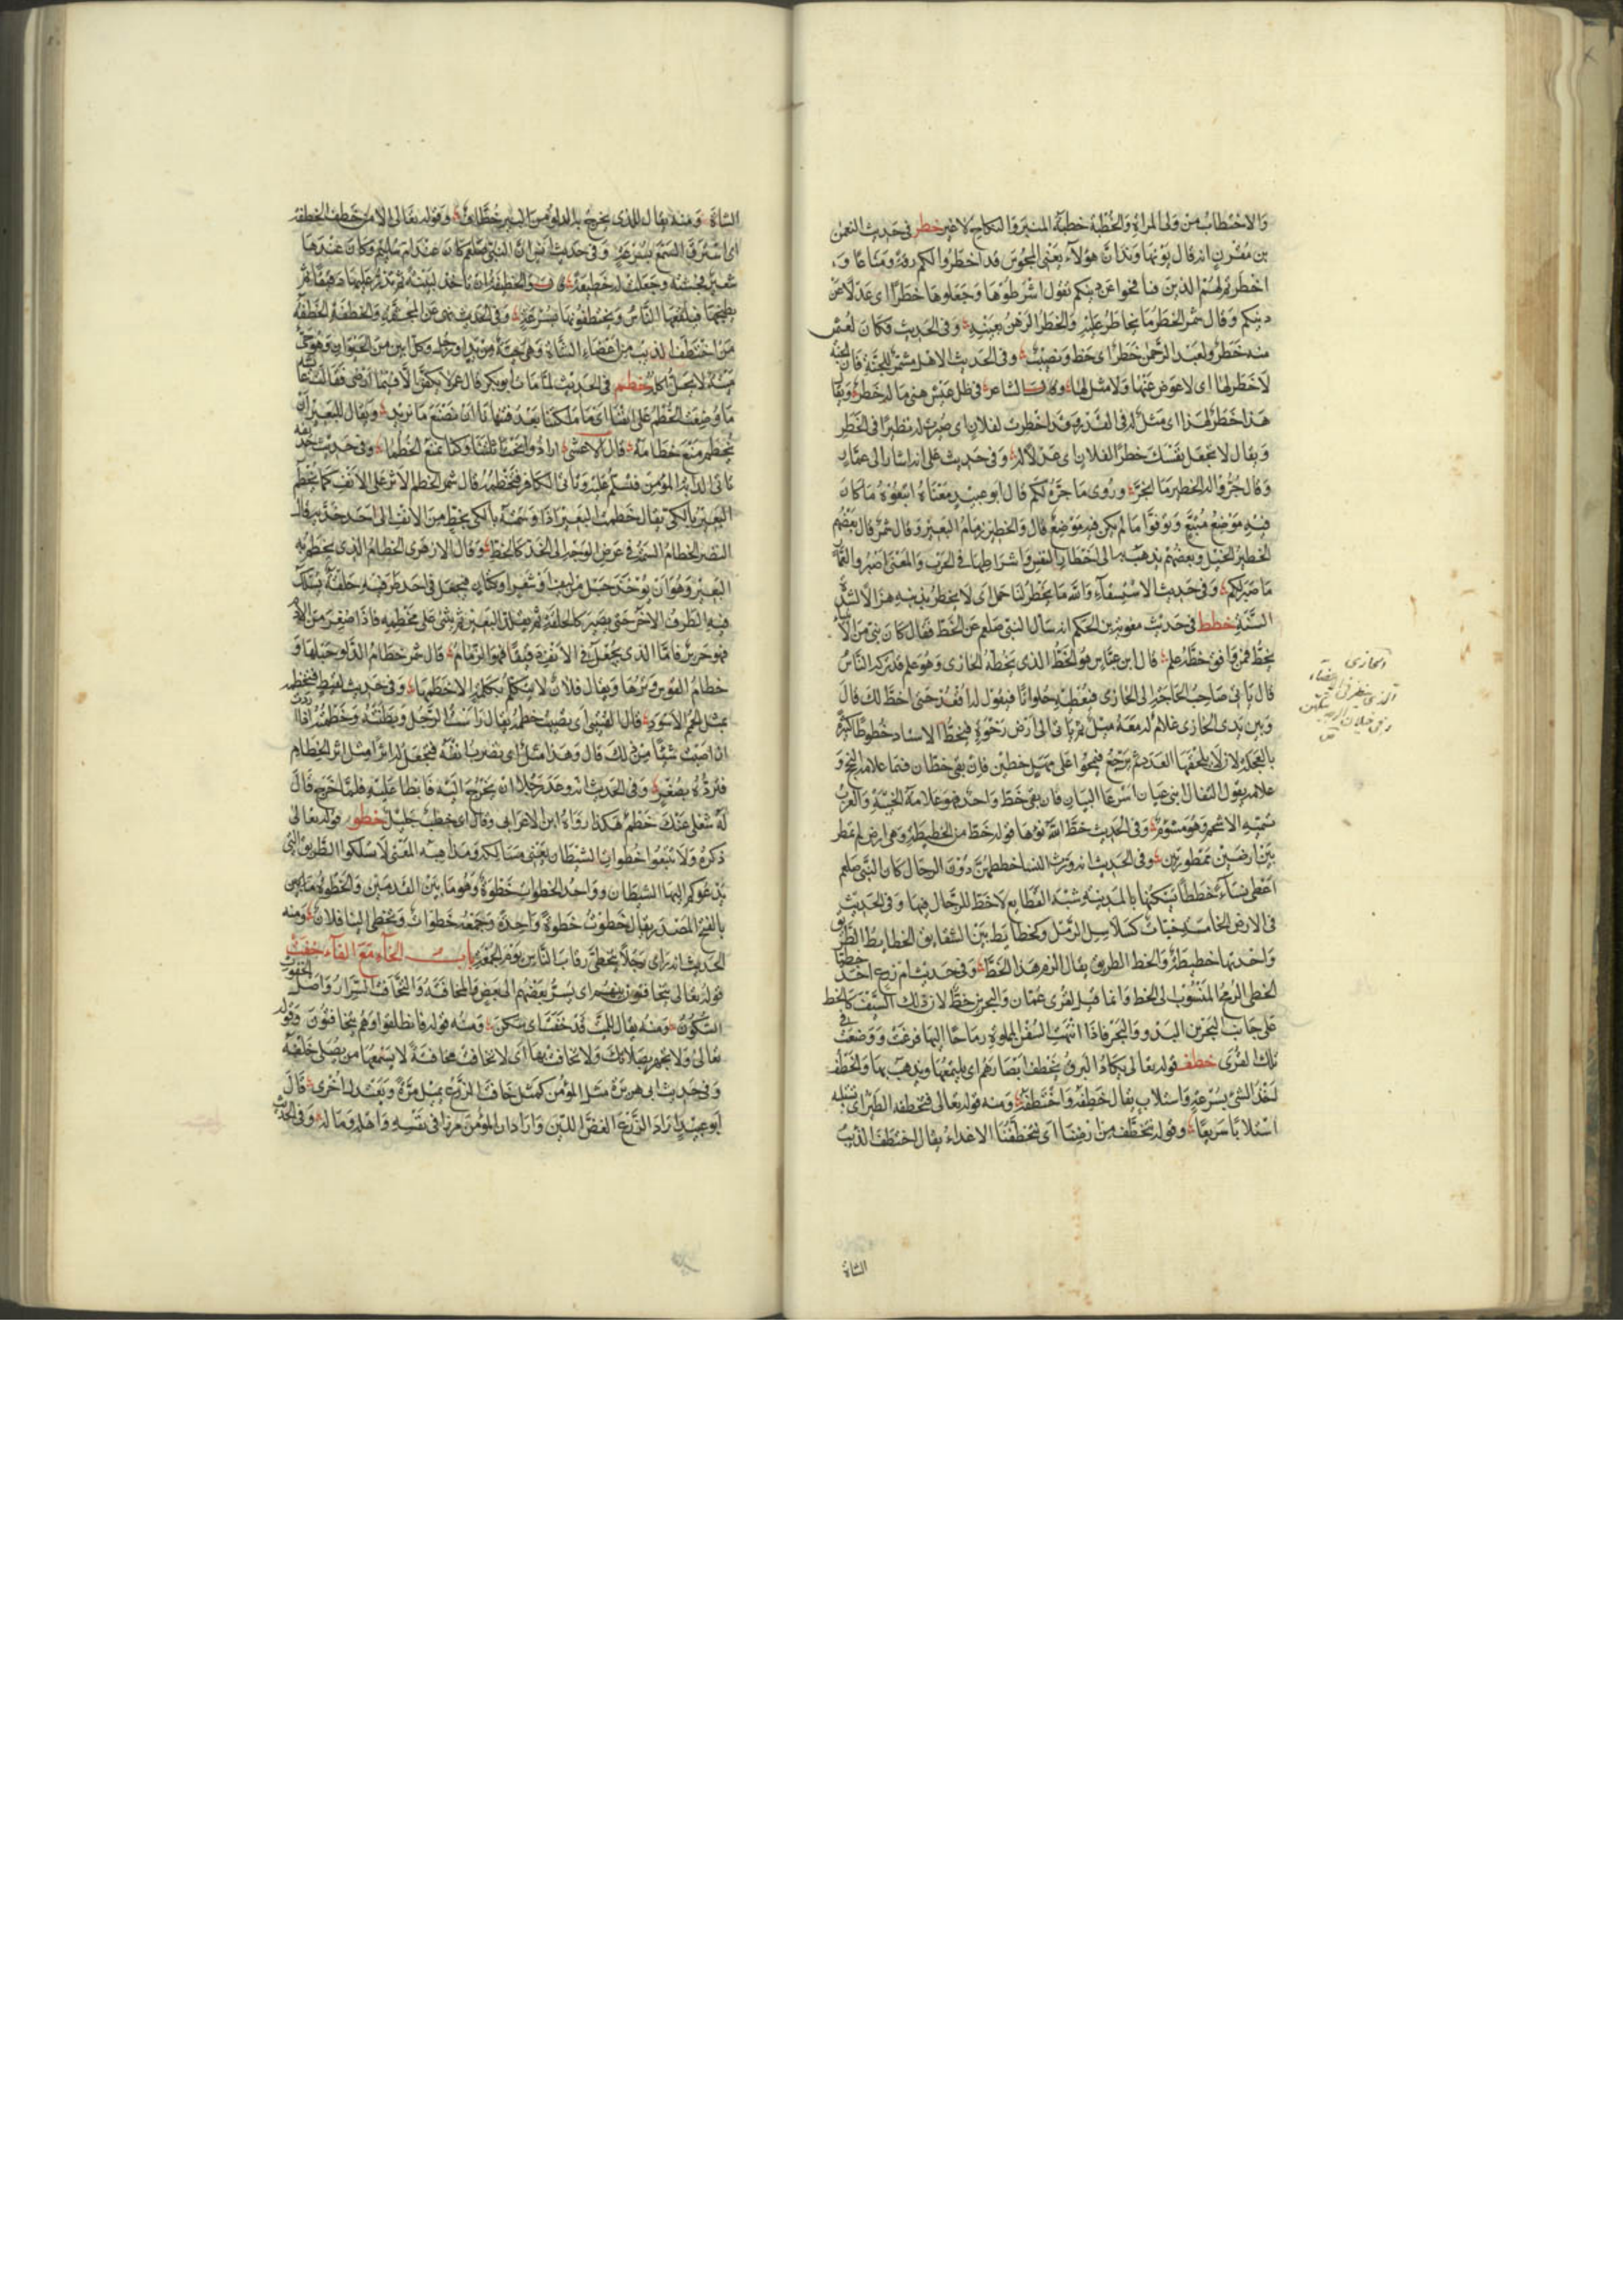 والاختطاب من ولى المراة والخطبة خطبة المنبر والنكاح لاغير خطر فى حديث النعمن
بن مقرن انه قال يوم نهاوند ان هؤلاء يعنى المجوس قد اخطروا لكم رثة ومتاعا و
اخطرتم لهم الدين فنافحوا عن دينكم يقول اشرطوها وجعلوها خطرا اى عدلا عن
دينكم وقال شمر الخطر ما يخاطر عليه والخطر الرهن بعينه وفى الحديث فكان لعثمن
منه خطر ولعبد الرحمن خطر اى حظ ونصيب وفى الحديث الا هل مشمر للجنة فان الجنة
لا خطر لها اى لا عوض عنها ولا مثل لها وقال الشاعر فى ظل عيش هنى ما له خطر ويقال
هذا خطر لهذا اى مثل له فى القدر وقد اخطرت لفلان اى صيرت له نظيرا فى الخطر
ويقال لا تجعل نفسك خطرا لفلان اى عدلا له وفى حديث على انه اشار الى عمار
وقال جروا له الخطير ما انجر وروى ما جره لكم قال ابو عبيد معناه اتبعوه ما كان
فيه موضع متبع وتوقوا ما لم يكن فيه موضع قال والخطير زمام البعير وقال شمر قال بعضهم
الخطير الحبل وبعضهم يذهب به الى اخطار النفس واشراطها فى الحرب والمعنى اصبروا لعمار
ما صبر لكم وفى حديث الاستسقاء والله ما يخطر لنا جمل اى لا يخطر بذنبه هزالا لشدة
السنة خطط فى حديث معوية بن الحكم انه سال النبى صلعم عن الخط فقال كان نبى من الانبياء
يخط فمن وافق خطه علم قال ابن عباس هو الخط الذى يخطه الحازى وهو علم قد تركه الناس
قال ياتى صاحب الحاجة الى الحازى فيعطيه حلوانا فيقول له اقعد حتى اخط لك قال
وبين يدى الحازى غلام له معه ميل ثم ياتى الى ارض رخوة فيخط الاستاد خطوطا كثيرة
بالعجلة لان لا يلحقها العدد ثم يرجع فيمحوا على مهل خطين فان بقى خطان فهما علامة النجح و
غلامه يقول للتفال ابنى عيان اسرعا البيان فان بقى خط واحد فهو علامة الخيبة والعرب
تسميه الاسحم وهو مشؤم وفى الحديث خط الله نوءها قوله خط من الخطيطة وهى ارض لم تمطر
بين ارضين ممطورتين وفى الحديث انه ورث النسا خططهن دون الرجال كان النبى صلعم
اعطى نساء خططا يسكنها بالمدينة شبه القطايع لا حظ للرجال فيها وفى الحديث
فى الارض الخامسة حيات كسلاسل الرمل وكخطايط بين الشقايق الخطايط الطرق
واحدتها خطيطة والخط الطريق يقال الزم هذا الخط وفى حديث ام زرع اخذ خطيا
الخطى الرمح المنسوب الى الخط وانما قيل لقرى عمان والبحرين خط لان ذلك السيف كالخط
على جانب البحرين البدو والبحر فاذا انتهت السفن المملوة رماحا اليها فرغت ووضعت فى
تلك القرى خطف قوله تعالى يكاد البرق يخطف ابصارهم اى يلتمعها ويذهب بها والخطف
اخذ الشئ بسرعة واستلاب يقال خطفه واختطفه ومنه قوله تعالى فتخطفه الطير اى تستلبه
استلابا سريعا وقوله نتخطف من ارضنا اى يتخطفنا الاعداء يقال اختطف الذئب
الشاة
الشاة ومنه يقال للذى يخرج به الدلو من البير خطاف وقوله تعالى الا من خطف الخطفة
اى استرق السمع بسرعة وفى حديث انس ان النبى صلعم كان عند ام سليم وكان عندها
شعير فجشته وجعلت له خطيفة والخطيفة ان تاخذ لبينة ثم تذر عليها دقيقا ثم
يطبخها فيلعقها الناس ويختطفونها بسرعة وفى الحديث نهى عن المجثمة والخطفة الخطفة
من اختطف الذيب من اعضاء الشاة وهى حية من يد او رجل وكل ابين من الحيوان وهو حى
ميتة لا يحل اكله خطم فى الحديث لما مات ابو بكر قال عمر لا يكفن الا فيما اوصى فقالت عائشة
ما وضعت الخطم على انفنا اى ما ملكتنا بعد فتنهانا ان نصنع ما نريد ويقال للبعير ان
يخطم منع خطامه قال الاعشى ارادوا نحت اثلتنا وكنا نمنع الخطما وفى حديث حذيفة
تاتى الدابة المؤمن فتسلم عليه وتاتى الكافر فتخطمه قال شمر الخطم الاثر على الانف كما يخطم
البعير بالكى يقال خطمت البعير اذا وسمته بالكى بخط من الانف الى احد خديه وقال
النضر الخطام السمة فى عرض الوجه الى الخد كالخط وقال الازهرى الخطام الذى يخطم به
البعير وهو ان يوخذ حبل من ليف او شعر او كتان فيجعل فى احد طرفيه حلقة يسلك
فيه الطرف الاخر حتى يصير كالحلقة ثم يقلد البعير ثم يثنى على مخطمه فاذا ضفر من الادم
فهو جرير فاما الذى يجعل فى الانف دقيقا فهو الزمام قال شمر خطام الدلو حبلها و
خطام القوس وترها ويقال فلان لا يتكلم بكلمة الا خطمها وفى حديث لقيط فتخطمه
بمثل الحمم الاسود قال القتيبى اى تصيب خطمه يقال راست الرجل وبطنته وخطمته اذا اردت
ان اصبت شيئا من ذلك قال وهذا مثل اى تضرب انفه فتجعل له اثرا مثل اثر الخطام
فترده بصغير وفى الحديث انه وعد رجلا ان يخرج اليه فابطا عليه فلما خرج قال
له شغلى عنك خطم هكذا رواه ابن الاعرابى وقال اى خطب جليل خطو قوله تعالى
ذكره ولا تتبعوا خطوات الشيطان يعنى مسالكه ومذاهبه المعنى لا تسلكوا الطريق التى
يدعوكم اليها الشيطان وواحد الخطوات خطوة وهو ما بين القدمين والخطوة
بالفتح المصدر يقال خطوت خطوة واحدة وجمعه خطوات وتخطى الينا فلان ومنه
الحديث انه راى رجلا يتخطى رقاب الناس يوم الجمعة باب الخاء مع الفاء خفت
قوله تعالى يتخافتون بينهم اى يسر بعضهم الى بعض والمخافتة والتخافت السرار واصل الخفوت
السكون ومنه يقال للميت قد خفت اى سكن ومنه قوله فانطلقوا وهم يتخافتون وقوله
تعالى ولا تجهر بصلاتك ولا تخافت بها اى لا تخافت مخافتة لا يسمعها من يصلى خلفه
وفى حديث ابى هريرة مثل المؤمن كمثل خافت الزرع يميل مرة ويعتدل اخرى قال
ابو عبيد اراد الزرع الغض اللين واراد ان المؤمن مرزا فى نفسه واهله وماله وفى الحديث